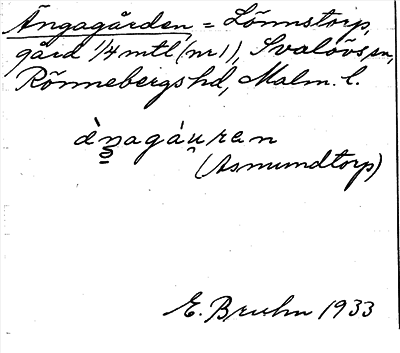 Ängagården = Lönnstorp,
gård 1/4 mtl (nr 1), Svalövs sn,
Rönnebergs hd, Malm. l.
(Asmundtorp)
E. Bruhn 1933